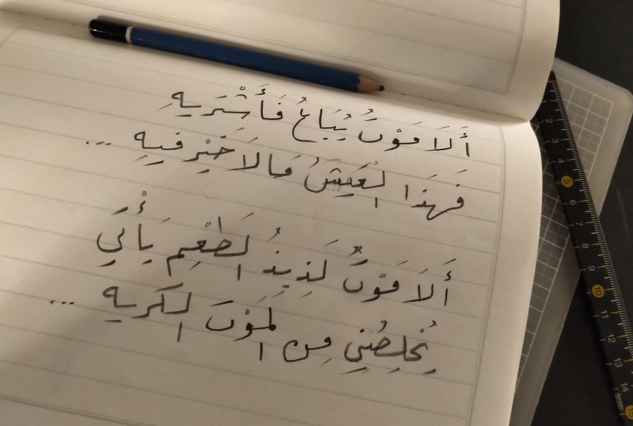 أَلَا مَوْتٌ يُبَاعُ فَأَشْتَرِيهِ
فَهَذَا الْعَيْشُ مَالَا خَيْرَ فِيهِ ...
أَلَا مَوْتٌ لَذِيذُ الطَّعْمِ يَأْتِي
يُخَلِّصُنِي مِنَ الْمَوْتِ الكَرِيهِ ...